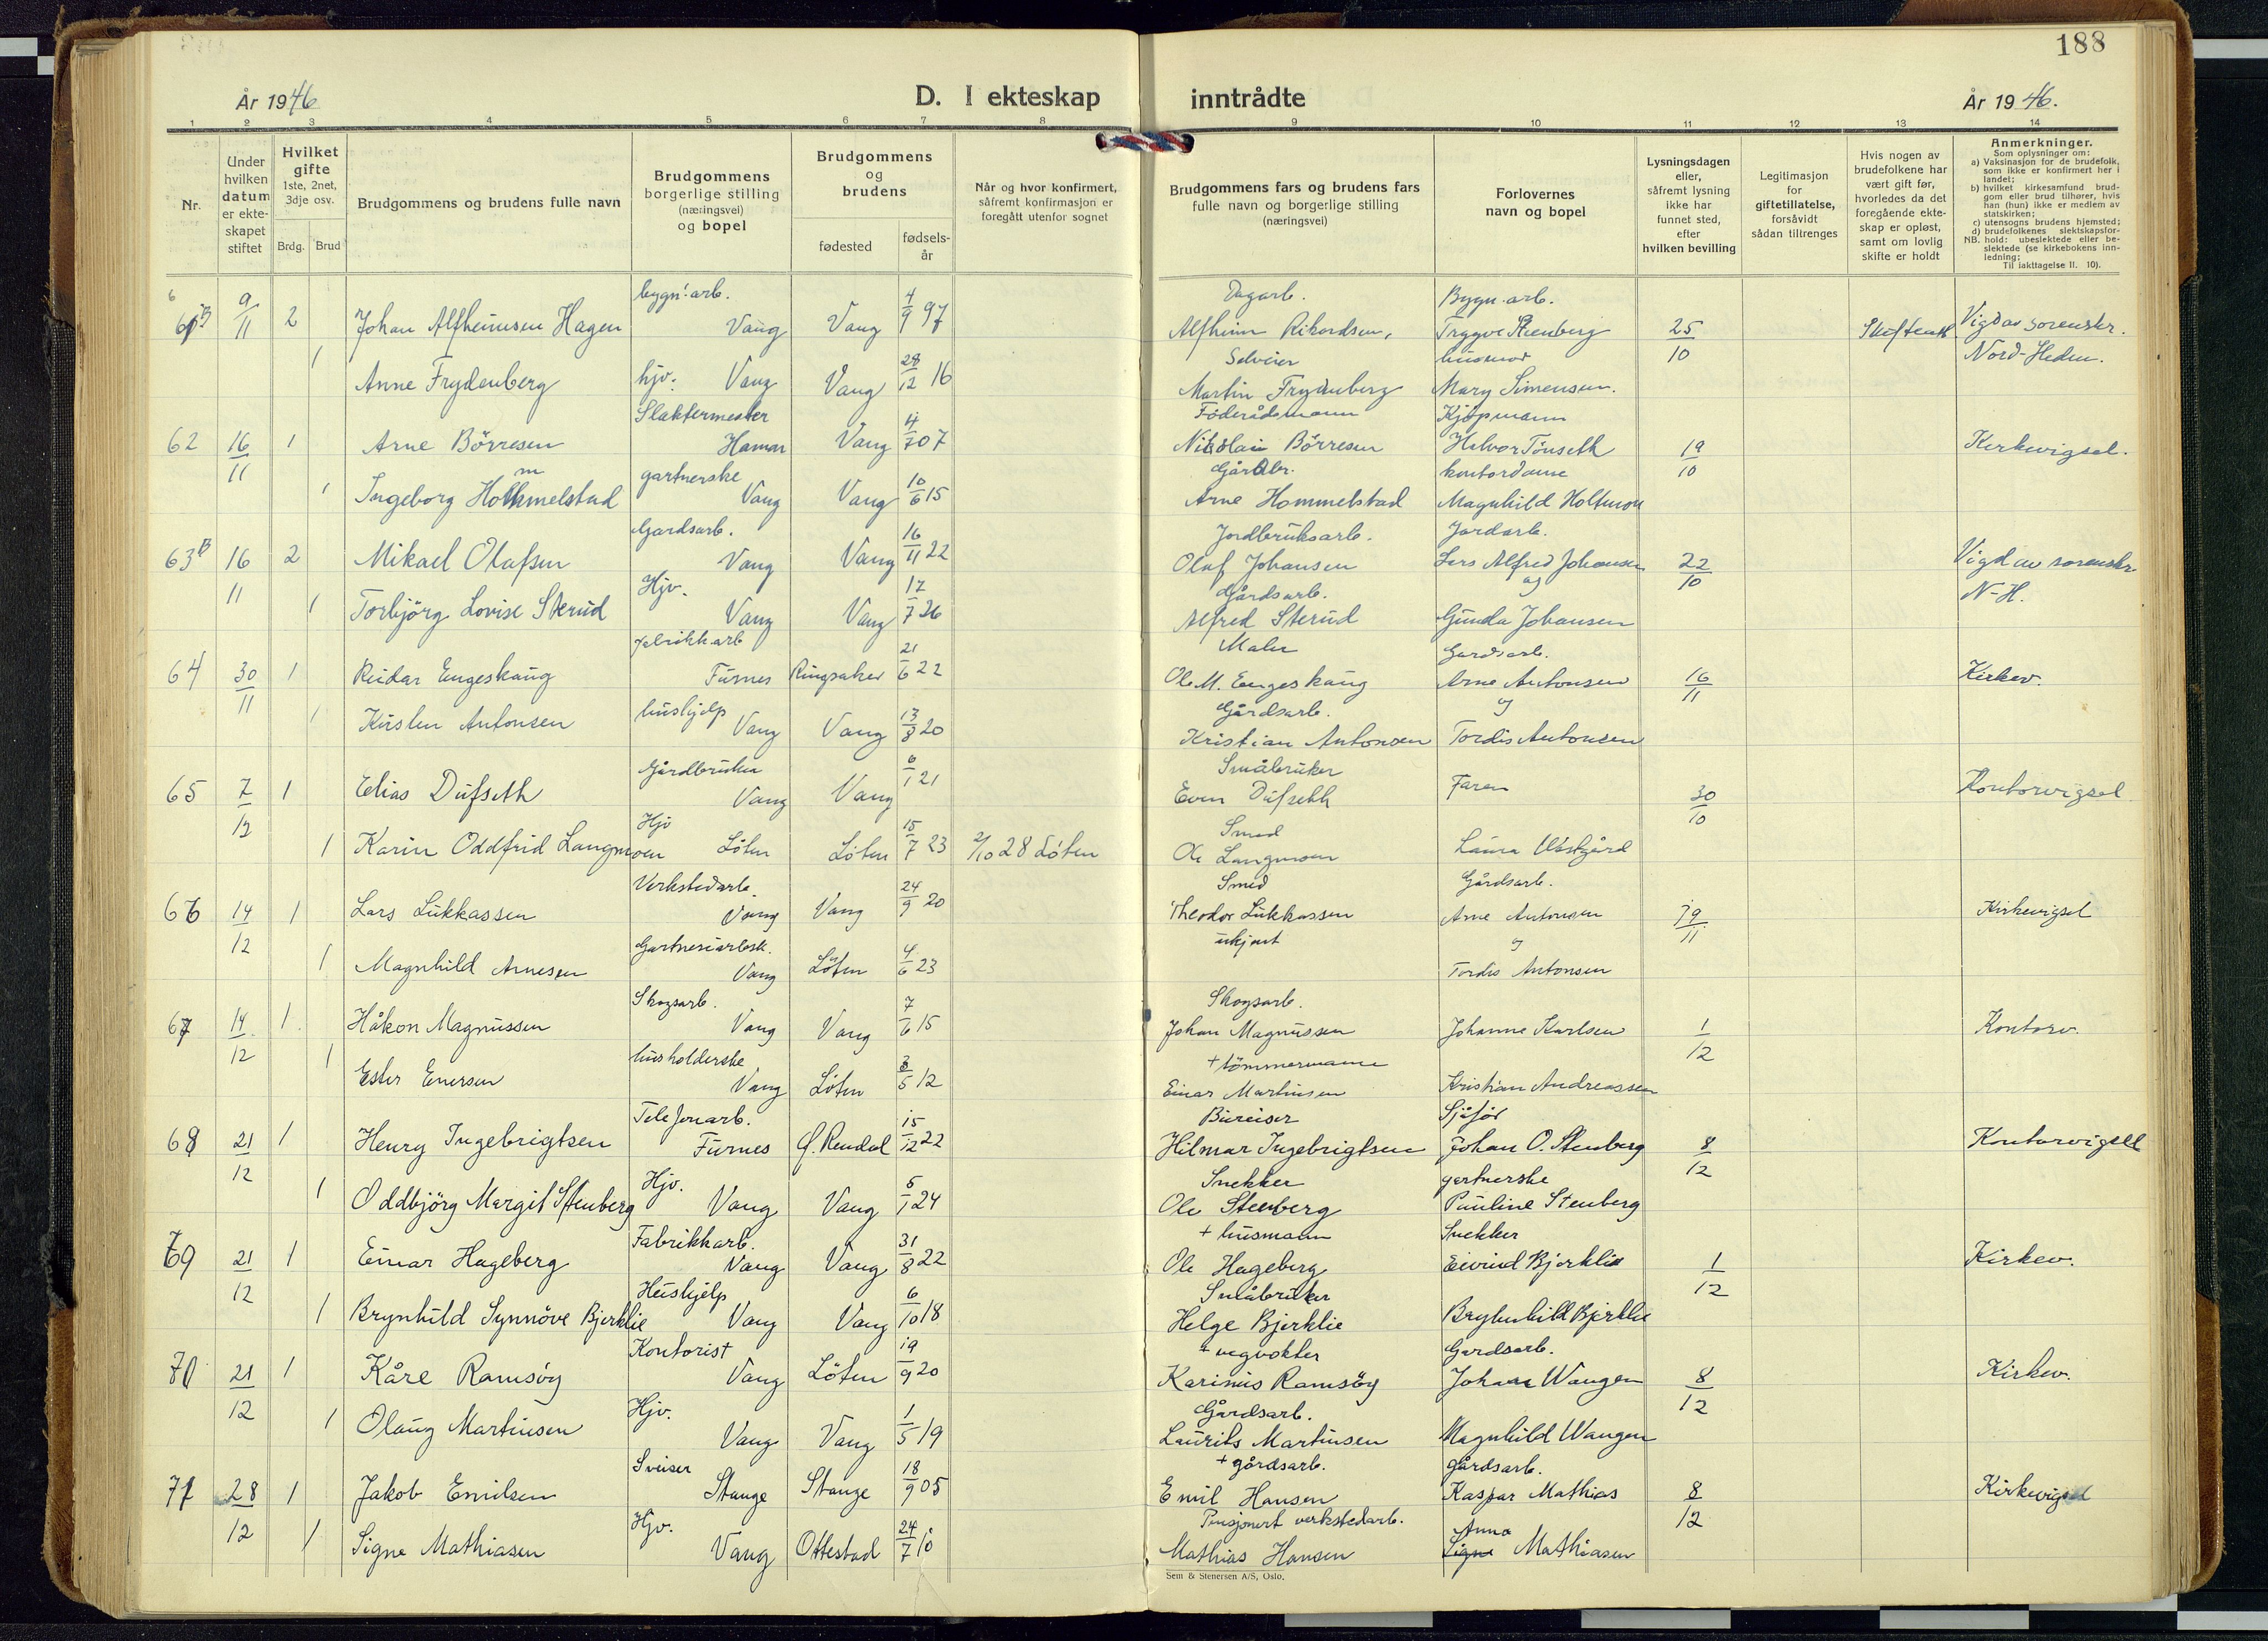 188
År 1946
D. I ekteskap
inntrådte
År 1946.
1 2 3 4 5 6 7 8 9 10 11 12 13 14
Nr.
Under hvilken datum er ekteskapet stiftet
Hvilket gifte 1ste, 2net, 3dje osv.
Brdg. Brud
Brudgommens og brudens fulle navn
Brudgommens borgerlige stilling (næringsvei) og bopel
Brudgommens og brudens
fødested
fødselsår
Når og hvor konfirmert, såfremt konfirmasjon er foregått utenfor sognet
Brudgommens fars og brudens fars fulle navn og borgerlige stilling (næringsvei)
Forlovernes navn og bopel
Lysningsdagen eller, såfremt lysning ikke har funnet sted, efter hvilken bevilling
Legitimasjon for giftetillatelse, forsåvidt sådan tiltrenges
Hvis nogen av brudefolkene har vært gift før, hvorledes da det foregående ekteskap er opløst, samt om lovlig skifte er holdt
Anmerkninger.
Som oplysninger om:
a) Vaksinasjon for de brudefolk, som ikke er konfirmert her i landet;
b) hvilket kirkesamfund brudgom eller brud tilhører, hvis han (hun) ikke er medlem av statskirken;
c) utensogns brudens hjemsted;
d) brudefolkenes slektskapsforhold: ubeslektede eller beslektede (se kirkebokens innledning;
NB.
Til iakttagelse II. 10).
bygn. arb. Dagarb. Bygn. arb.
61B 9/11 2 Johan Alfheimsen Hagen Vang Vang 4/9 97 Alfheim Rikardsen, Trygve Stenberg 25/10 Vigd av sorenskr.
Selveier husmor Nord-Hedm.
1 Anne Frydenberg hjv. Vang Vang 28/12 16 Martin Frydenberg Mary Simensen.
Slaktermester Föderådsmann Kjøpmann
62 16/11 1 Arne Börresen Hamar Vang 4/7 07 Nikolai Börresen Halvor Tönseth 19/10 Kirkevigsel.
gartnerske Gårdbr. kontordame
1 Ingeborg Hommelstad Vang Vang 10/6 15 Arne Hommelstad Magnhild Holtmon
Gardsarb. Jordbruksarb. Jordarb.
63B 16/11 2 Mikael Olafsen Vang Vang 16/11 22 Olaf Johansen Lars Alfred Johansen 22/10 Vigd av sorenskr.
Hjv. Gårdsarb. og N-H.
1 Torbjörg Lovise Sterud Vang Vang 17/7 26 Alfred Sterud Gunda Johansen
fabrikkarb Maler Gardsarb.
64 30/11 1 Reidar Engeskaug Furnes Ringsaker 21/6 22 Ole M. Engeskaug Arne Antonsen 16/11 Kirkev.
hushjelp Gårdsarb. og
1 Kirsten Antonsen Vang Vang 13/8 20 Kristian Antonsen Tordis Antonsen
Gårdbruker Småbruker
65 7/12 1 Elias Dufseth Vang Vang 6/1 21 Even Dufseth Faren 30/10 Kontorvigsel
Hjv Smed
1 Karin Oddfrid Langmoen Löten Löten 15/7 23 2/10 28 Löten Ole Langmoen Laura
Verkstedarb. Smed Gårdsarb.
66 14/12 1 Lars Lukkassen Vang Vang 24/9 20 Theodor Lukkassen Arne Antonsen 19/11 Kirkevigsel
Gartneriarbsk. ukjent og
1 Magnhild Arnesen Vang Löten 4/6 23 Tordis Antonsen
Skogsarb. Skogsarb.
67 14/12 1 Håkon Magnussen Vang Vang 7/6 15 Johan Magnussen Johanne Karlsen 1/12 Kontorv.
husholderske + tömmermann
1 Ester Enersen Vang Löten 3/5 12 Einar Martinsen Kristian Andreassen
Telefonarb. Bureiser Sjåför
68 21/12 1 Henry Ingebrigtsen Furnes Rendal 15/12 22 Hilmar Ingebrigtsen Johan O. Stenberg 8/12 Kontorvigsel
Hjv. Snekker gartnerske
1 Oddbjörg Margit Stenberg Vang Vang 5/1 24 Ole Stenberg Pauline Stenberg
Fabrikkarb. + husmann Snekker
69 21/12 1 Einar Hageberg Vang Vang 31/8 22 Ole Hageberg Eivind Bjerklie 1/12 Kirkev.
Hushjelp Småbruker
1 Brynhild Synnöve Bjerklie Vang Vang 6/10 18 Helge Bjerklie Brynhild Bjerklie
Kontorist + vegvokter Gardsarb.
70 21/12 1 Kåre Ramsöy Vang Löten 19/9 20 Karinus Ramsöy Johan Wangen 8/12 Kirkev.
Hjv. Gårdsarb.
1 Olaug Martinsen Vang Vang 1/5 19 Laurits Martinsen Magnhild Wangen
Sveiser + gårdsarb. gårdsarb.
71 28/12 1 Jakob Emilsen Stange Stange 18/9 05 Emil Hansen Kaspar Mathias 8/12 Kirkevigsel
Hjv. Pensjonert verkstedarb. Anna
1 Signe Mathiasen Vang Ottestad 24/7 10 Mathias Hansen Signe Mathiasen
Sem & Stenersen A/S, Oslo.